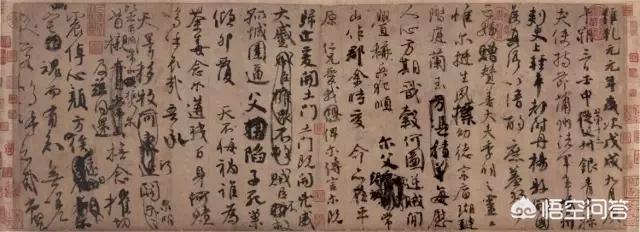 維乾元元年歲次戊戌九月庚
午朔三日壬申第十三叔銀青光祿
夫使持節蒲州諸軍事蒲州
刺史上輕車都尉丹楊縣開國
侯真卿以清酌庶羞祭于
亡姪贈贊善大夫季明之靈曰
惟爾挺生夙標幼德宗廟瑚璉
階庭蘭玉每慰
人心方期戩穀何圖逆賊閒
釁稱兵犯順爾父竭誠常
山作郡余時受命亦在平
原仁兄愛我俾爾傳言爾既
歸止爰開土門土門既開凶威
大蹙賊臣不救
孤城圍逼父陷子死巢
傾卵覆天不悔禍誰為
荼毒念爾遘殘百身何贖
嗚乎哀哉吾承
天澤移牧河關泉明
首櫬及茲同還撫念摧切
震悼心顏
魂而有知無嗟
久客嗚呼哀哉尚饗
悟空问答